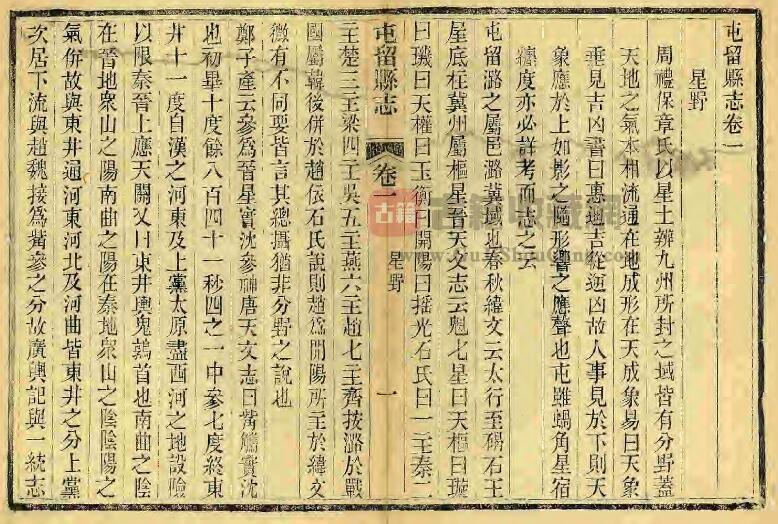 屯留縣志卷一
星野
周禮保章氏以星土辨九州所封之域皆有分野蓋
天地之氣本相流通在地成形在天成象易曰天象
垂見吉凶書曰惠迪吉從逆凶故人事見於下則天
象應於上如影之隨形響之應聲也屯雖蝸角星宿
纏度亦必詳考而志之云
屯留潞之屬邑潞冀域也春秋緯文云太行至碣石王
屋底柱冀州屬樞星晉天文志云魁七星曰天樞曰璇
曰璣曰天權曰玉衡曰開陽曰搖光石氏曰一主秦二
屯留縣志
卷一
星野
一
主楚三主梁四主吳五主燕六主趙七主齊按潞於戰
國屬韓後併於趙依石氏說則趙為開陽所主於緯文
微有不同要皆言其總攝猶非分野之說也
鄭子產云參為晉星實沈參神唐天文志曰觜觿實沈
也初畢十度餘八百四十一秒四之一中參七度終東
井十一度自漢之河東及上黨太原盡西河之地設險
以限秦晉上應天關又曰東井輿鬼鶉首也南曲之陰
在晉地眾山之陽南曲之陽在秦地眾山之陰陰陽之
氣併故與東井通河東河北及河曲皆東井之分上黨
次居下流與趙魏接為觜參之分故廣輿記與一統志
古籍
古籍收藏網